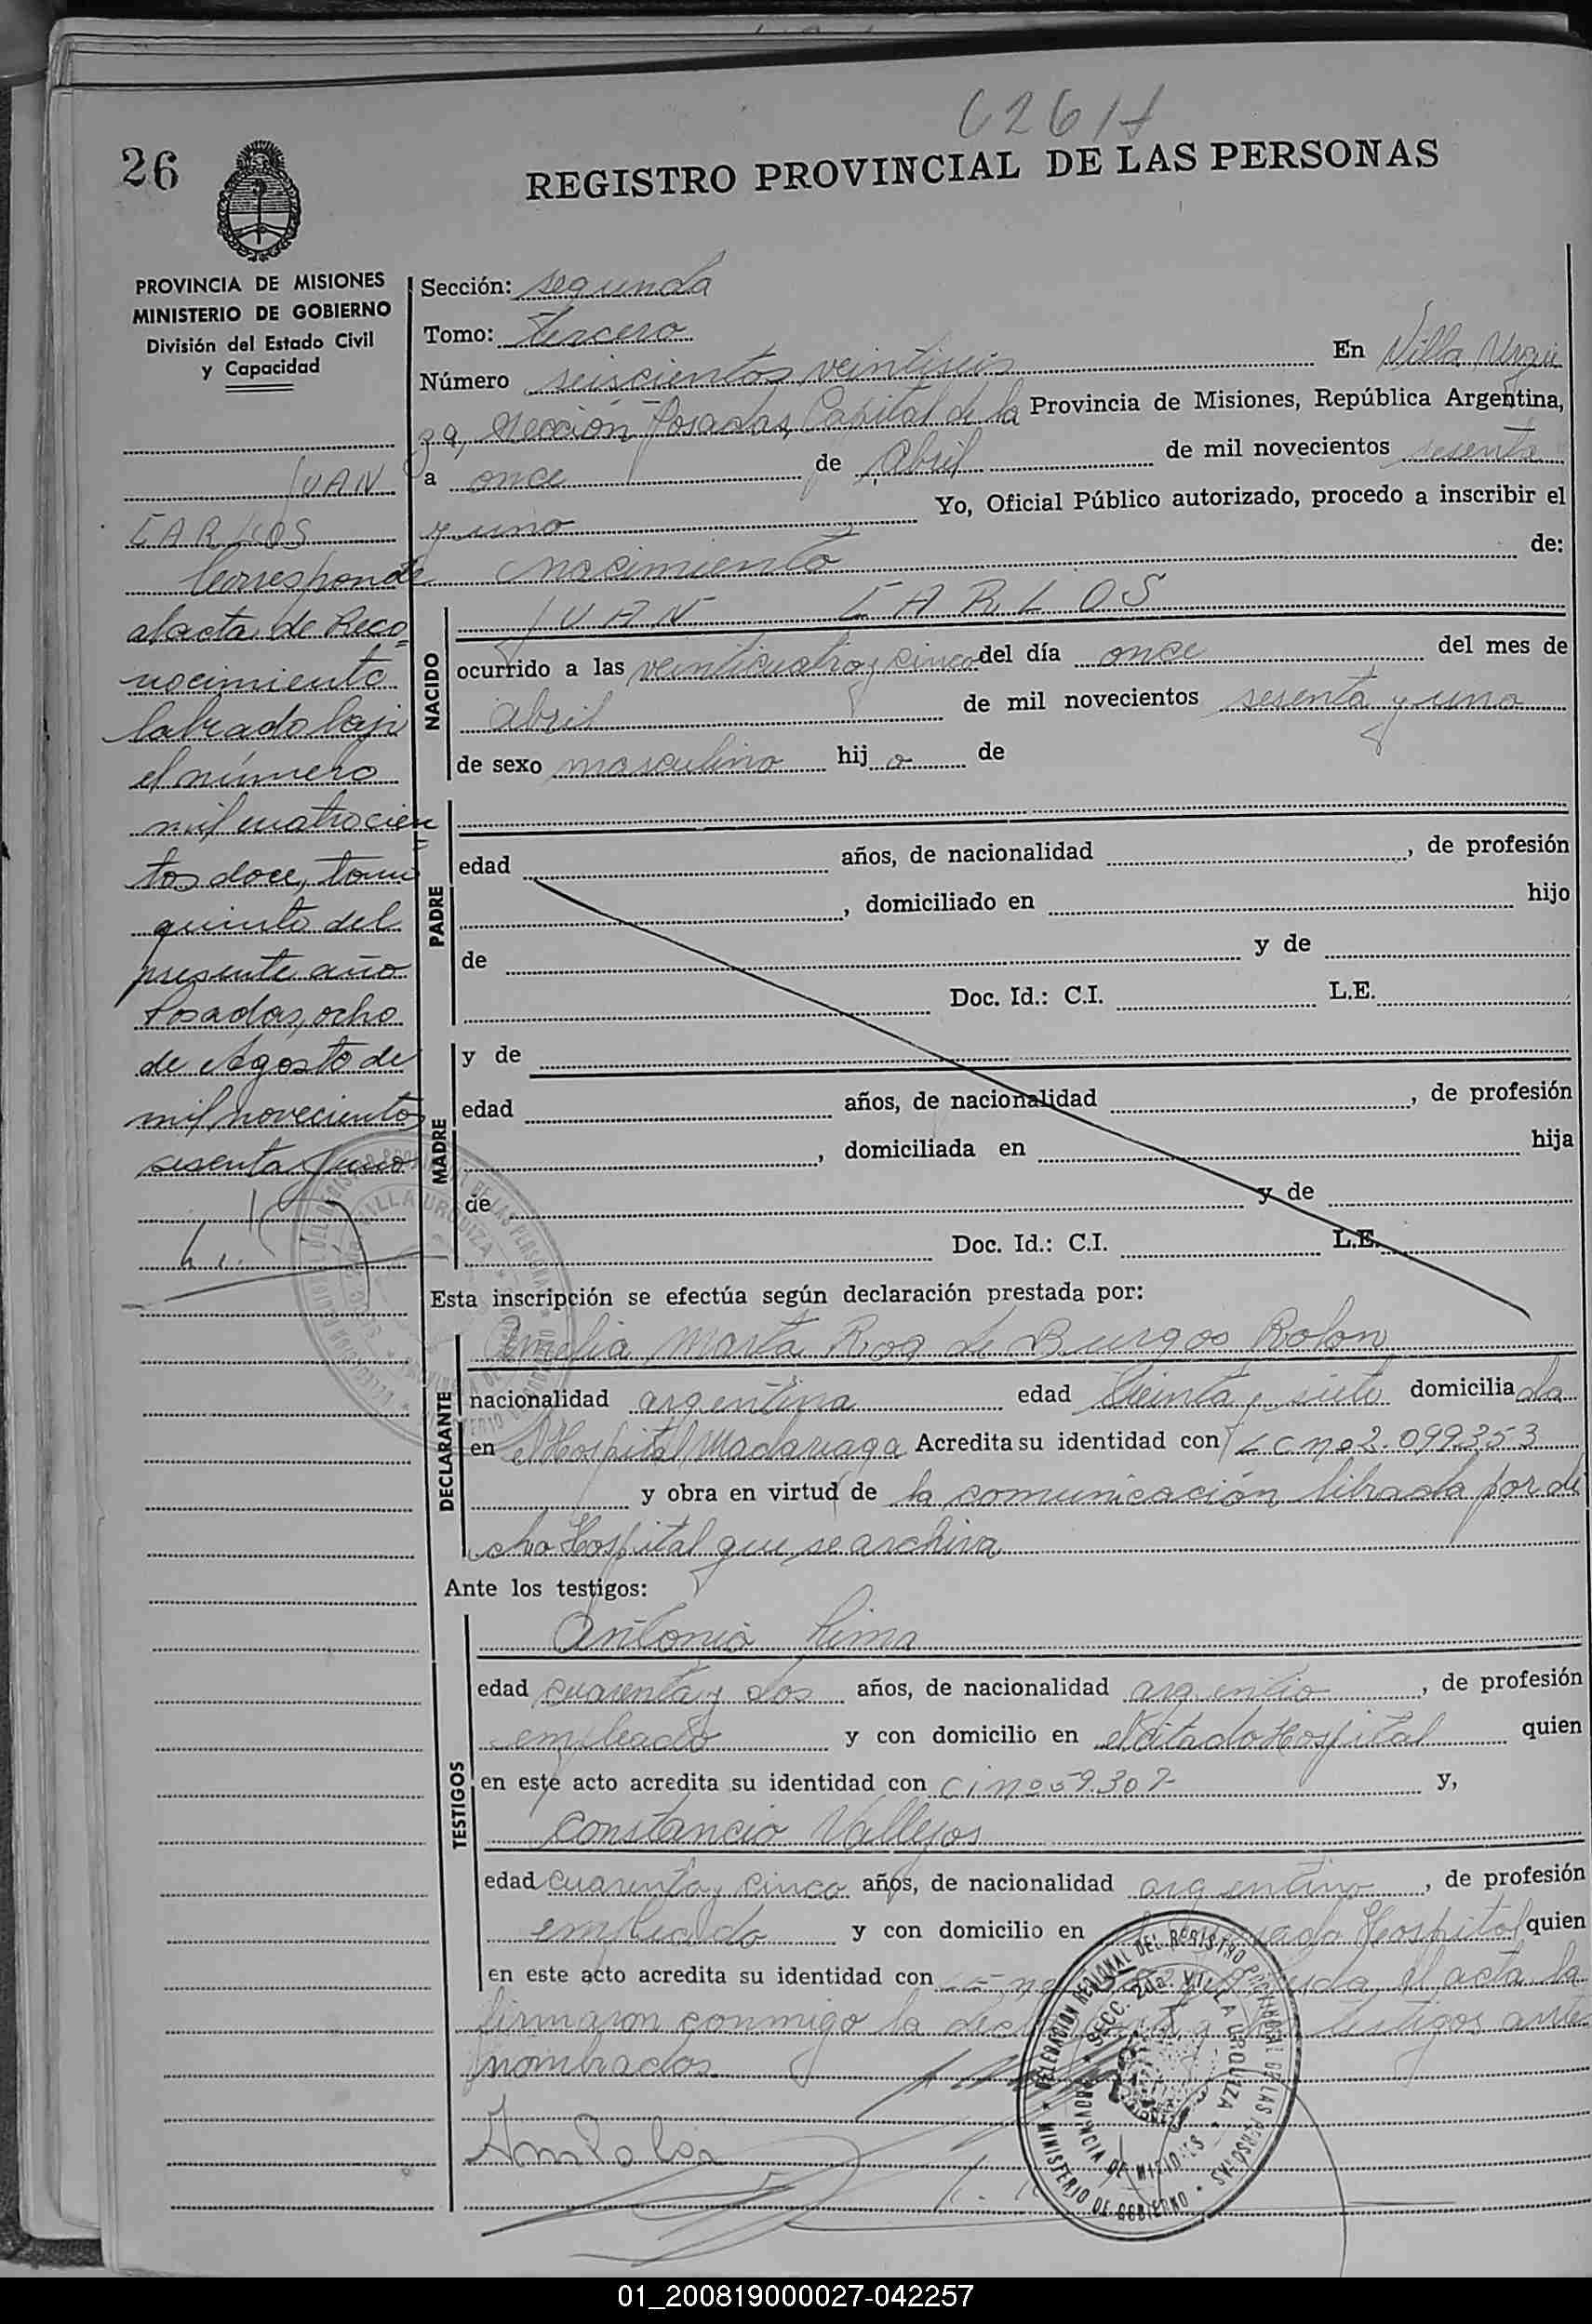 26
REGISTRO PROVINCIAL DE LAS PERSONAS
PROVINCIA DE MISIONES
MINISTERIO DE GOBIERNO
División del Estado Civil
y Capacidad
JUAN
CARLOS
Corresponde
al acta de Reco=
nocimiento
labrado bajo
el número
mil cuatrocien=
tos doce, tomo
quinto del
presente año
Posadas, ocho
de Agosto de
mil novecientos
sesenta y uno
Sección: segunda
Tomo: tercero
Número seiscientos veintiseis En Villa Urqui
za, Sección Posadas, Capital de la Provincia de Misiones, República Argentina,
a once de Abril de mil novecientos sesenta
y uno Yo, Oficial Público autorizado, procedo a inscribir el
nacimiento de:
NACIDO
JUAN CARLOS
ocurrido a las veinticuatro y cinco del día once del mes de
abril de mil novecientos sesenta y uno
de sexo masculino hij o de
PADRE
edad años, de nacionalidad , de profesión
, domiciliado en hijo
de y de
Doc. Id.: C.I. L.E.
MADRE
y de
edad años, de nacionalidad , de profesión
, domiciliada en hija
de y de
Doc. Id.: C.I. L.E.
Esta inscripción se efectúa según declaración prestada por:
DECLARANTE
Amelia Marta Roa de Burgos Rolon
nacionalidad argentina edad treinta y siete domicilia da
en el Hospital Madariaga Acredita su identidad con L C nº 2.099353
y obra en virtud de la comunicación librada por di
cho Hospital que se archiva
Ante los testigos:
TESTIGOS
Antonio Lima
edad cuarenta y dos años, de nacionalidad argentio , de profesión
empleado y con domicilio en el citado Hospital quien
en este acto acredita su identidad con C i nº 59.307 y,
Constancio Vallejos
edad cuarenta y cinco años, de nacionalidad argentino , de profesión
empleado y con domicilio en Hospital quien
en este acto acredita su identidad con el acta la
firmaron conmigo la testigos ante
nombrados.
DELEGACION REGIONAL DEL REGISTRO PROVINCIAL DE LAS PERSONAS
SECC. 2da. VILLA URQUIZA
PROVINCIA DE MISIONES
MINISTERIO DE GOBIERNO
01_200819000027-042257